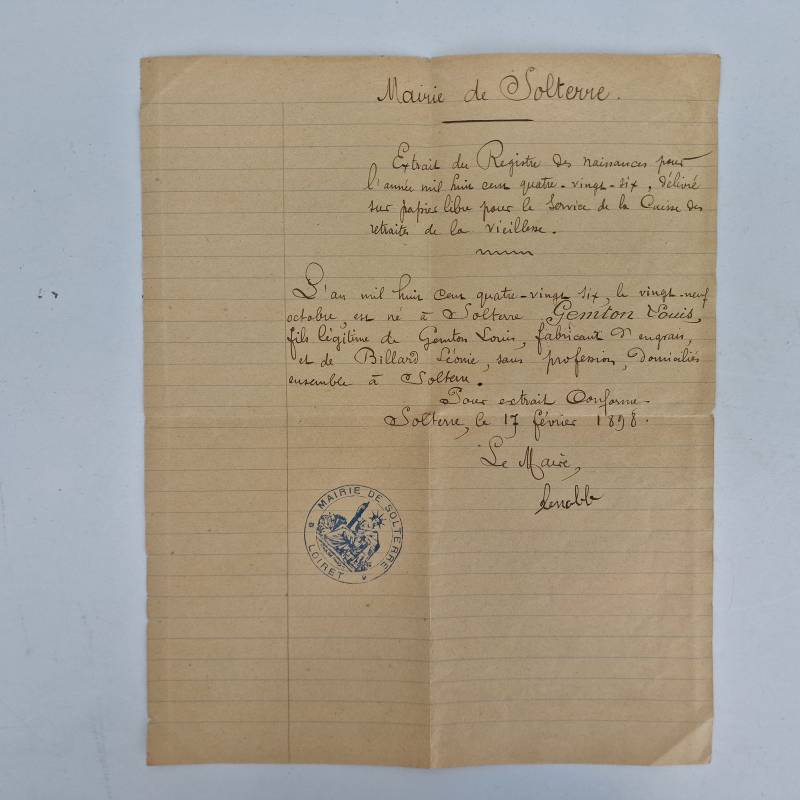 Mairie de Solterre.
Extrait du Registre des naissances pour
l'année mil huit cent quatre-vingt-six, délivré
sur papier libre pour le Service de la Caisse des
retraites de la vieillesse.
L'an mil huit cent quatre-vingt six, le vingt-neuf
octobre, est né à Solterre Gemton Louis,
fils légitime de Gemton Louis, fabricant d'engrais,
et de Billard Léonie, sans profession, domiciliés
ensemble à Solterre.
Pour extrait Conforme
Solterre, le 17 février 1898.
Le Maire,
MAIRIE DE SOLTERRE
LOIRET